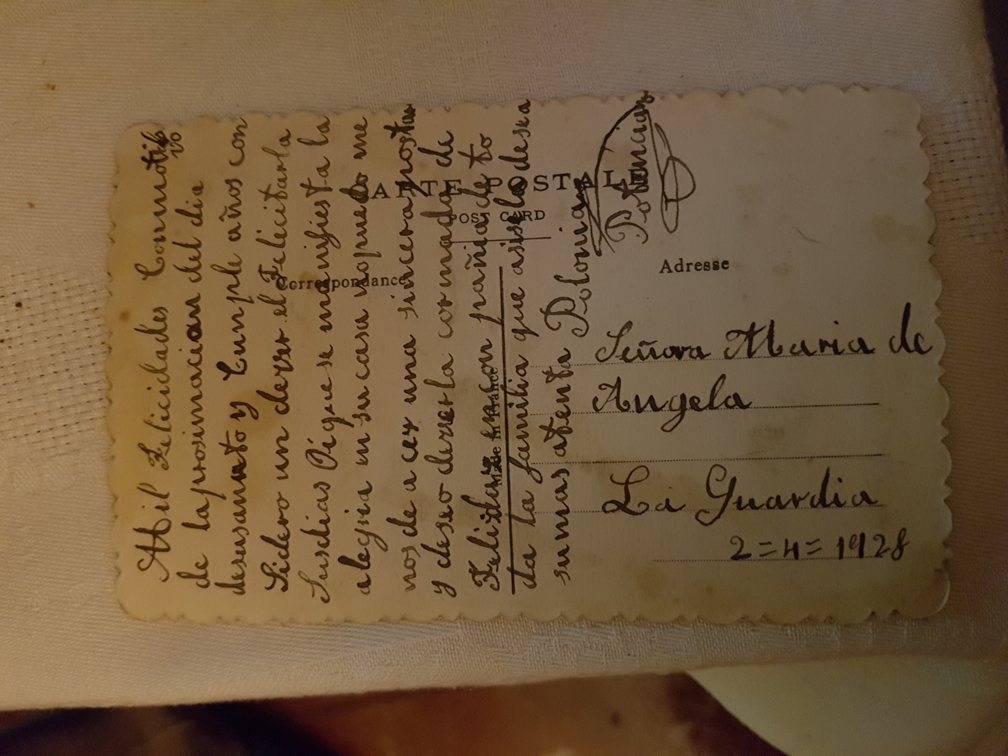 CARTE POSTALE
POST CARD
Correspondance
Adresse
Made in France
Mil Felicidades Conmotibo
de laprosimacion del dia
desusanto y Cumple años con
Sidero un dever el Felicitarla
Susdias Pigue se manifiesta la
alegria en su casa nopuedo me
nos de a cer una sincera postar
y deseo deverla cormada de
Felizidas en con pañia de to
da la familia que asise lo desea
su mas atenta Polonia
Potencian
Señora Maria de
Angela
La Guardia
2=4=1928